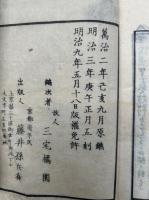 萬治二年己亥九月原雕
明治三年庚午正月五刻
明治九年五月十八日版權免許
故人
編次者 三宅橘園
京都府平民
出版人 藤井孫兵衛